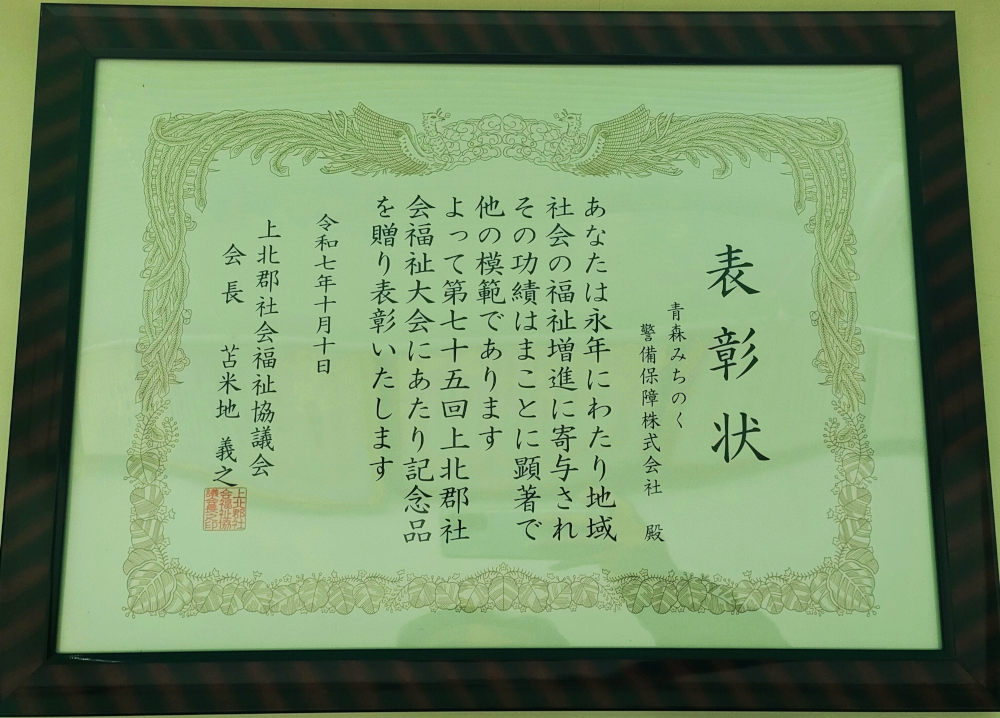 表彰状
青森みちのく
警備保障株式会社 殿
あなたは永年にわたり地域
社会の福祉増進に寄与され
その功績はまことに顕著で
他の模範であります
よって第七十五回上北郡社
会福祉大会にあたり記念品
を贈り表彰いたします
令和七年十月十日
上北郡社会福祉協議会
会長 苫米地 義之
上北郡社
会福祉協
議会長之印